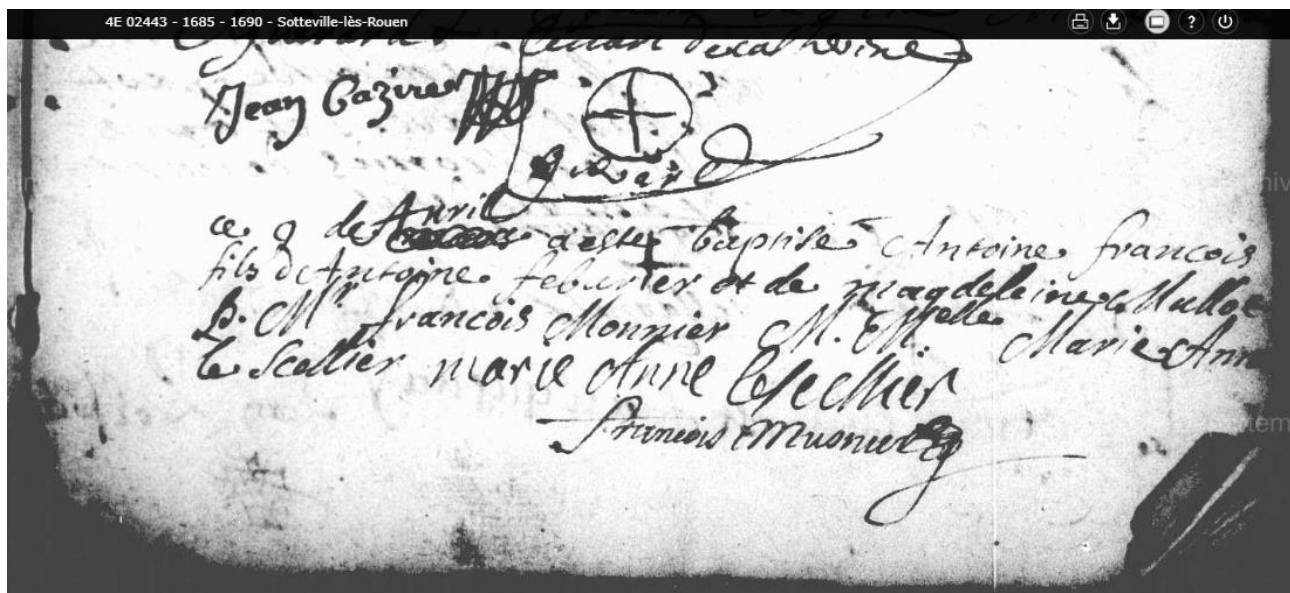 4E 02443 - 1685 - 1690 - Sotteville-lès-Rouen
de catherine
Jean Cazire
ce 9 de Avril a esté baptisé Antoine francois
fils d'Antoine feburier et de magdeleine Mullot
P. Mr francois Monnier M. M.elle Marie Anne
le Scellier marie Anne le sellier
francois Musnier